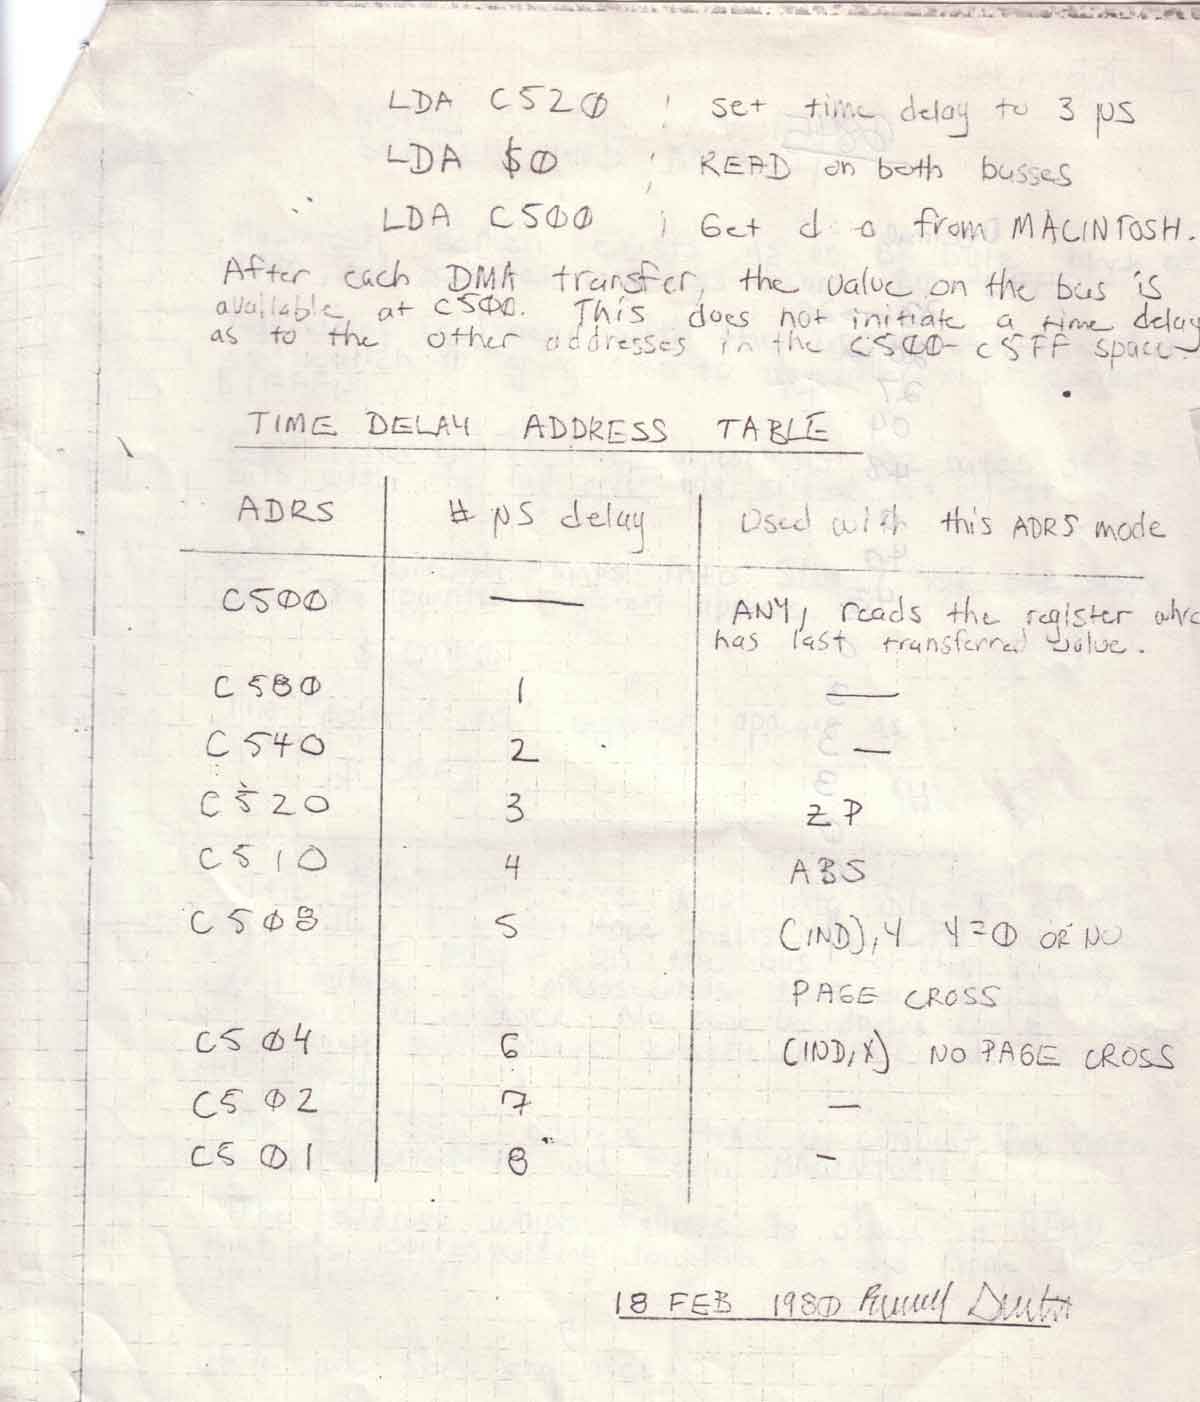 LDA C520 ; set time delay to 3 µs
LDA $0 ; READ on both busses
LDA C500 ; Get d a from MACINTOSH.
After each DMA transfer, the value on the bus is
available at C500. This does not initiate a time delay
as to the other addresses in the C500-C5FF space.
TIME DELAY ADDRESS TABLE
ADRS # µS delay Used with this ADRS mode
C500 — ANY, reads the register whic
has last transferred value.
C580 1 —
C540 2 —
C520 3 ZP
C510 4 ABS
C508 5 (IND),Y Y=0 OR NO
PAGE CROSS
C504 6 (IND,X) NO PAGE CROSS
C502 7 —
C501 8 -
18 FEB 1980